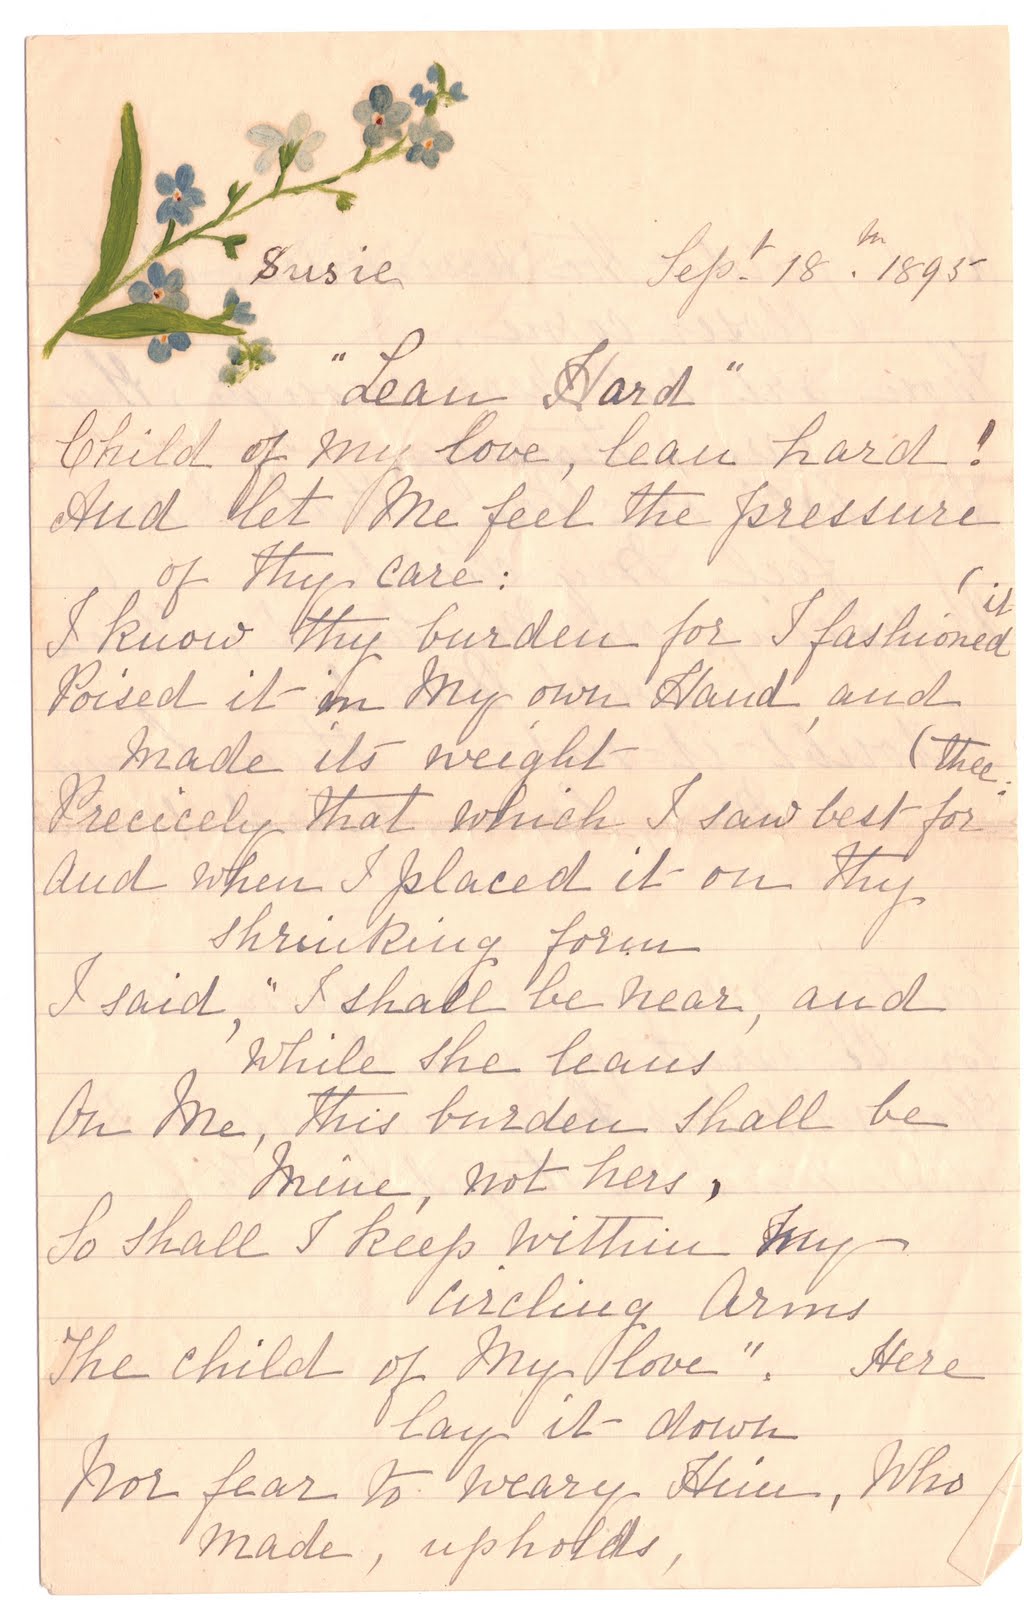 Susie Sept 18.th 1895
"Lean Hard"
Child of My love, lean hard!
And let Me feel the pressure
of thy care:
I know thy burden for I fashioned
(it
Poised it in My own Hand, and
made its weight
Precicely that which I saw best for
(thee:
And when I placed it on thy
shrinking form
I said, "I shall be near, and
while she leans
On Me, this burden shall be
Mine, not hers,
So shall I keep within My
circling Arms
The child of My love". Here
lay it down
Nor fear to weary Him, Who
made, upholds,